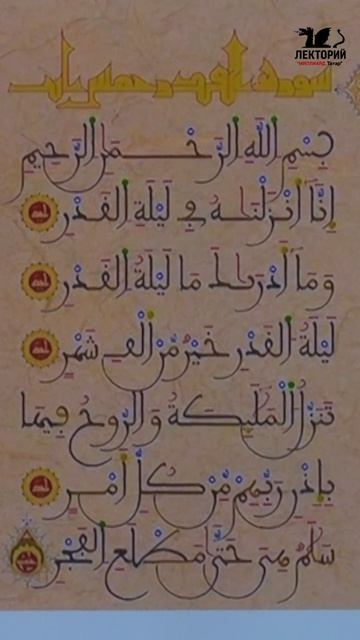 ЛЕКТОРИЙ
"МИЛЛИАРД.Татар"
سورة القدر خمس آيات
بِسْمِ اللَّهِ الرَّحْمَٰنِ الرَّحِيمِ
إِنَّا أَنزَلْنَاهُ فِي لَيْلَةِ الْقَدْرِ
وَمَا أَدْرَىٰكَ مَا لَيْلَةُ الْقَدْرِ
لَيْلَةُ الْقَدْرِ خَيْرٌ مِّنْ أَلْفِ شَهْرٍ
تَنَزَّلُ الْمَلَٰئِكَةُ وَالرُّوحُ فِيهَا
بِإِذْنِ رَبِّهِم مِّن كُلِّ أَمْرٍ
سَلَٰمٌ هِيَ حَتَّىٰ مَطْلَعِ الْفَجْرِ